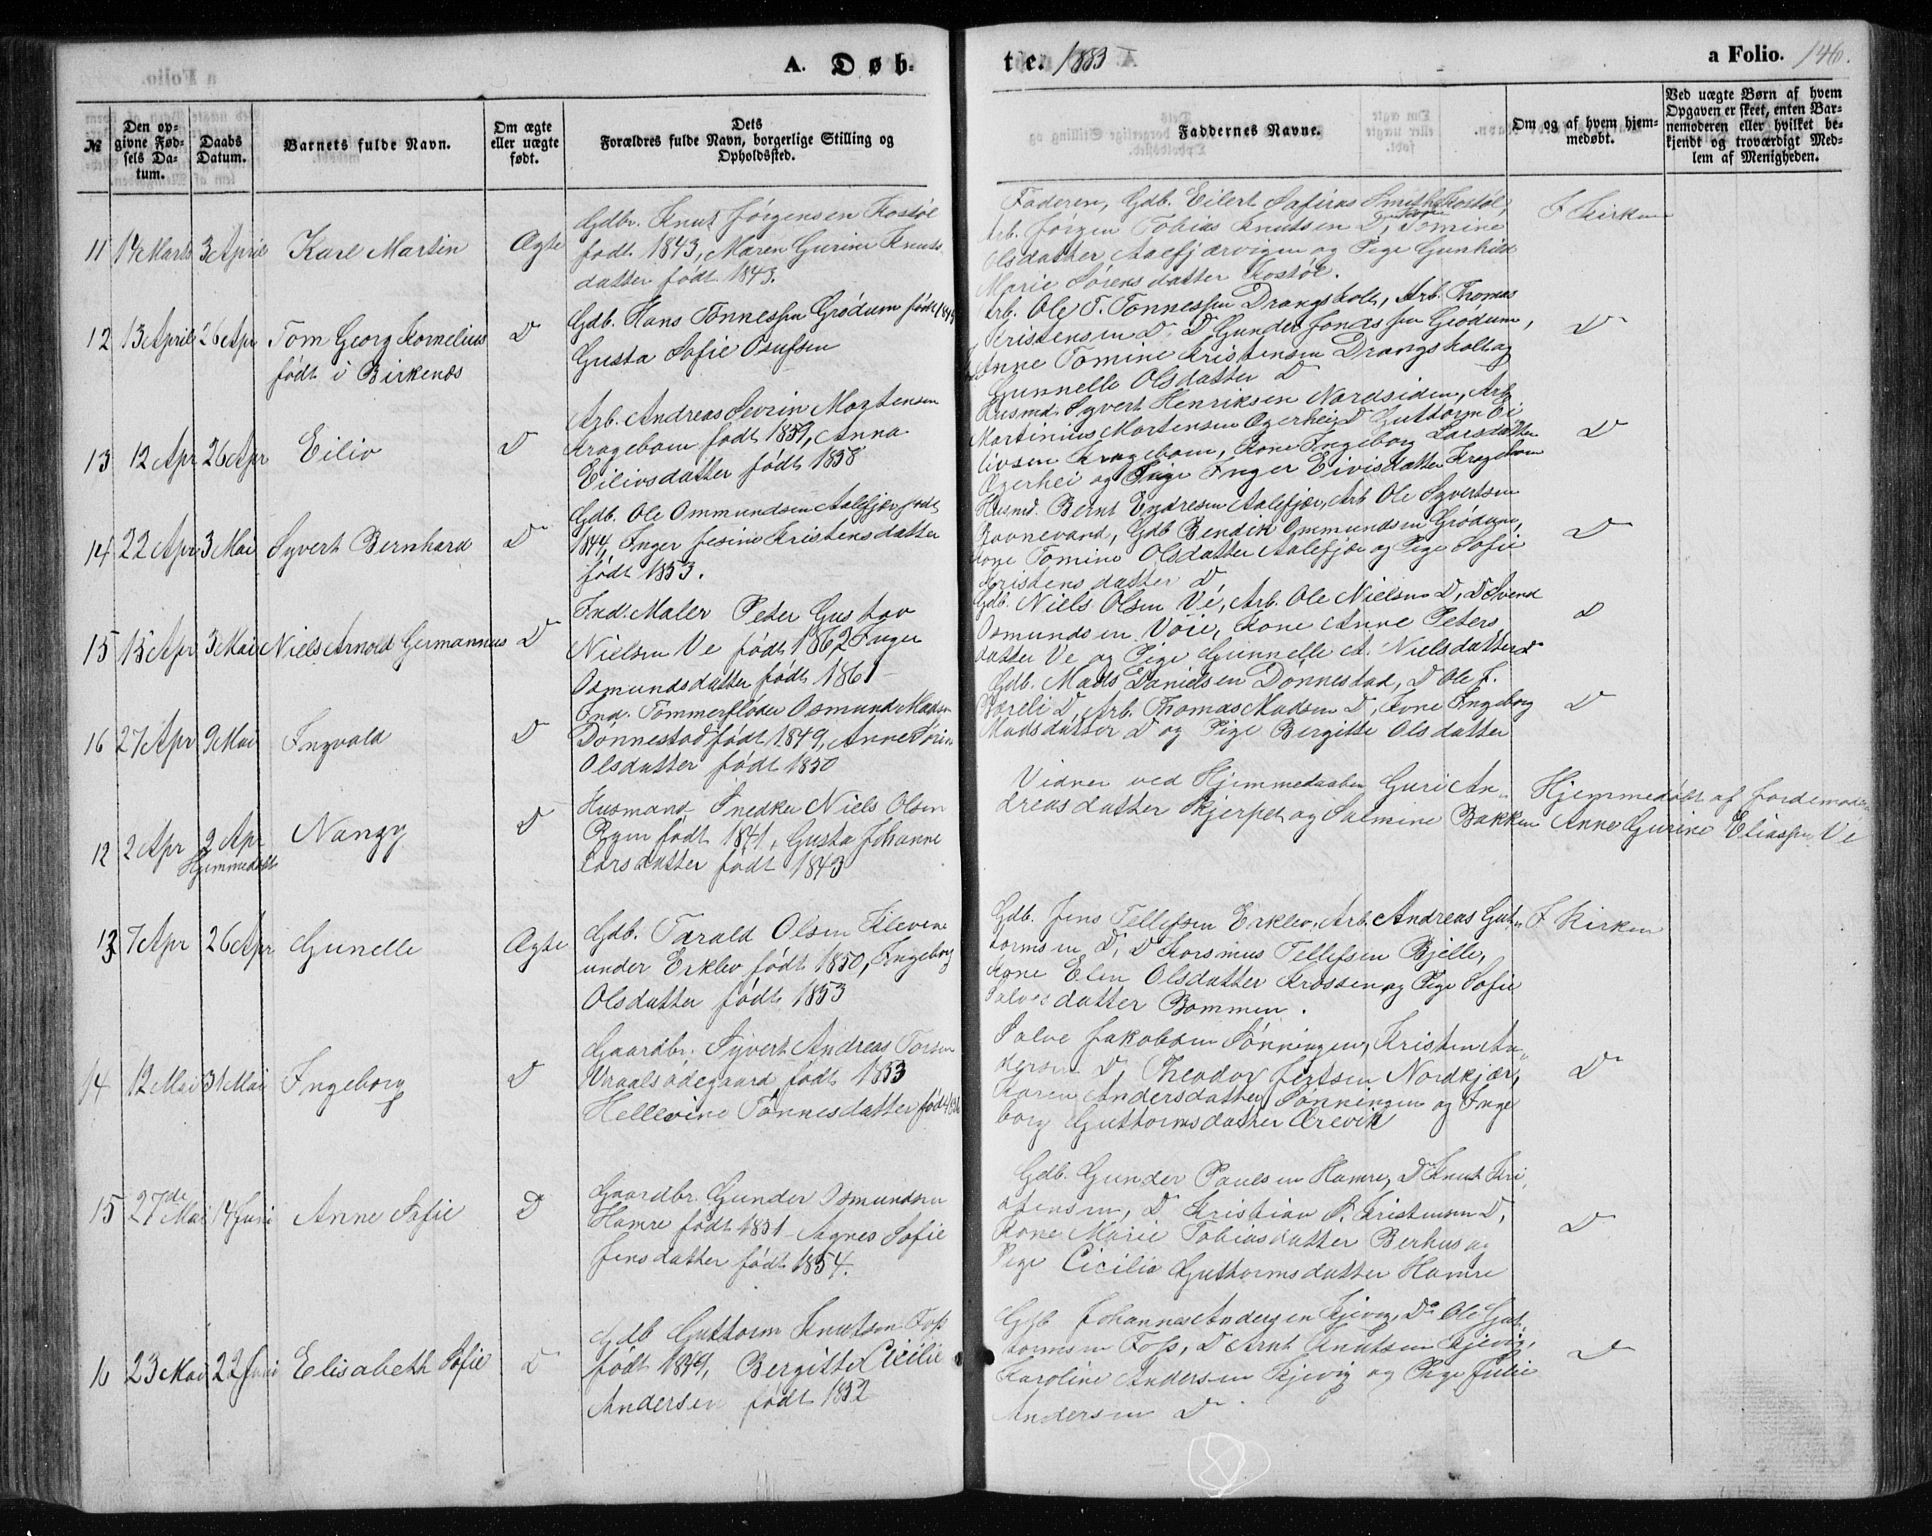 A. Døb-
te. 1883
a Folio. 146.
№
Den opgivne Fødsels Datum.
Daabs Datum.
Barnets fulde Navn.
Om ægte eller uægte født.
Dets Forældres fulde Navn, borgerlige Stilling og Opholdssted.
Faddernes Navne.
Om og af hvem hjemmedøbt.
Ved uægte Børn af hvem Opgaven er skeet, enten Barnemoderen eller hvilket bekjendt og troværdigt Medlem af Menigheden.
11 14 Marts 3 April Karl Martin Ægte
Gdbr. Knut Jørgensen Kostøl
født 1843, Maren Gurine Knuts
datter født 1843.
Faderen, Gdb. Eilert Safiras Smith Kostøl,
Arb. Jørgen Tobias Knutsen D, Kone Tomine
Olsdatter Aalefjærvigen og Pige Gunhild
Marie Sørensdatter Kostøl.
I Kirken
12 13 April 26 Apr Tom Georg Kornelius D
født i Birkenæs
Gdb. Hans Tønnessen Grødum født 1844
Gusta Sofie Osufsen
Arb. Ole T. Tønnessen Drangsholt, Arb. Thomas
Kristensen D. D Gunder Jondssen Grødum,
Anne Tomine Kristensen Drangsholt og
Gunnelle Olsdatter D
D
13 12 Apr 26 Apr Eiliv D
Arb. Andreas Sevrin Mortensen
Kragebom født 1859, Anna
Eilivsdatter født 1858
Husmd. Syvert Henriksen Nordsiden, Arb
Martinius Mortensen Ogerhei, D Guttorm Ei
livsen Kragebom, Kone Ingeborg Larsdatter
Ogerhei og Pige Inger Eivisdatter Kragebom
D
14 22 Apr 3 Mai Syvert Bernhard D
Gdb. Ole Ommundsen Aalefjær født
1844, Inger Jesine Kristensdatter
født 1853.
Husmd. Bernt Endresen Aalefjær, Arb Ole Syvertsen
Ravnevand, Gdb Bendik Ommundsen Grødum,
Kone Tomine Olsdatter Aalefjær og Pige Sofie
Kristensdatter D
D
15 15 Apr 3 Mai Niels Arnord Germannus D
Ind. Maler Peter Gustav
Nielsen Ve født 1862 Inger
Osmundsdatter født 1861
Gdb. Niels Olsen Ve, Arb. Ole Nielsen D, D Svend
Osmundsen Voie, Kone Anne Peters
datter Ve og Pige Gunnelle A. Nielsdatter D
D
16 27 Apr 9 Mai Ingvald D
Ind. Tømmerfløder Osmund Madsen
Dønnestad født 1849, Anne Sørine
Olsdatter født 1850
Gdb. Mads Danielsen Dønnestad, D Ole J.
Bæreli D, Arb. Thomas Madsen D, Kone Ingeborg
Madsdatter D og Pige Bergitte Olsdatter
D
12 2 Apr 2 Apr Nanzy D
Hjemmedøbt
Husmand Snedker Niels Olsen
født 1841, Gusta Johanne
Larsdatter født 1843
Vidner ved Hjemmedaaben Guri An-
dreasdatter Skjerpet og Salmine Bakken
Hjemmedøbt af Jordemoder
Anne Gurine Eliassen Ve
13 7 Apr 26 Apr Gunelle Ægte
Gdb. Tarald Olsen Klevene
under Erklev født 1850, Ingeborg
Olsdatter født 1853
Gdb. Jens Tellefsen Erklev, Arb. Andreas Gut-
tormsen D, D Korsmus Tellefsen Bjelle,
Kone Elen Olsdatter Krossen og Pige Sofie
Salvesdatter Bommen.
I Kirken
14 12 Mai 31 Mai Ingeborg D
Gaardbr. Syvert Andreas Torsen
Vraalsødegaard født 1853
Hellevine Tønnesdatter født
Salve Jakobsen Lønningen, Kristen An-
dersen D, Theodor Jentsen Nordkjær,
Karen Andersdatter Lønningen og Inge
borg Guttormsdatter Ærevik
D
15 27de Mai 14 Juni Anne Sofie D
Gaardbr. Gunder Osmundsen
Hamre født 1851 - Agnes Sofie
Jensdatter født 1854.
Gdb. Gunder Paulsen Hamre, D Knut Kri
stensen, D Kristian P. Kristensen D,
Kone Marie Tobiasdatter Berhus og
Pige Cicilie Guttormsdatter Hamre
D
16 23 Mai 22 Juni Elisabeth Sofie D
Gdb Guttorm Knutsen Foss
født 1849, Bergitte Cicilie
Andersen født 1852
Gdb Johannes Andersen Kjevig, Do Ole Gut
tormsen Foss, D Arnt Knutsen Kjevig,
Karoline Andersen Kjevig og Pige Julie
Andersen D.
D